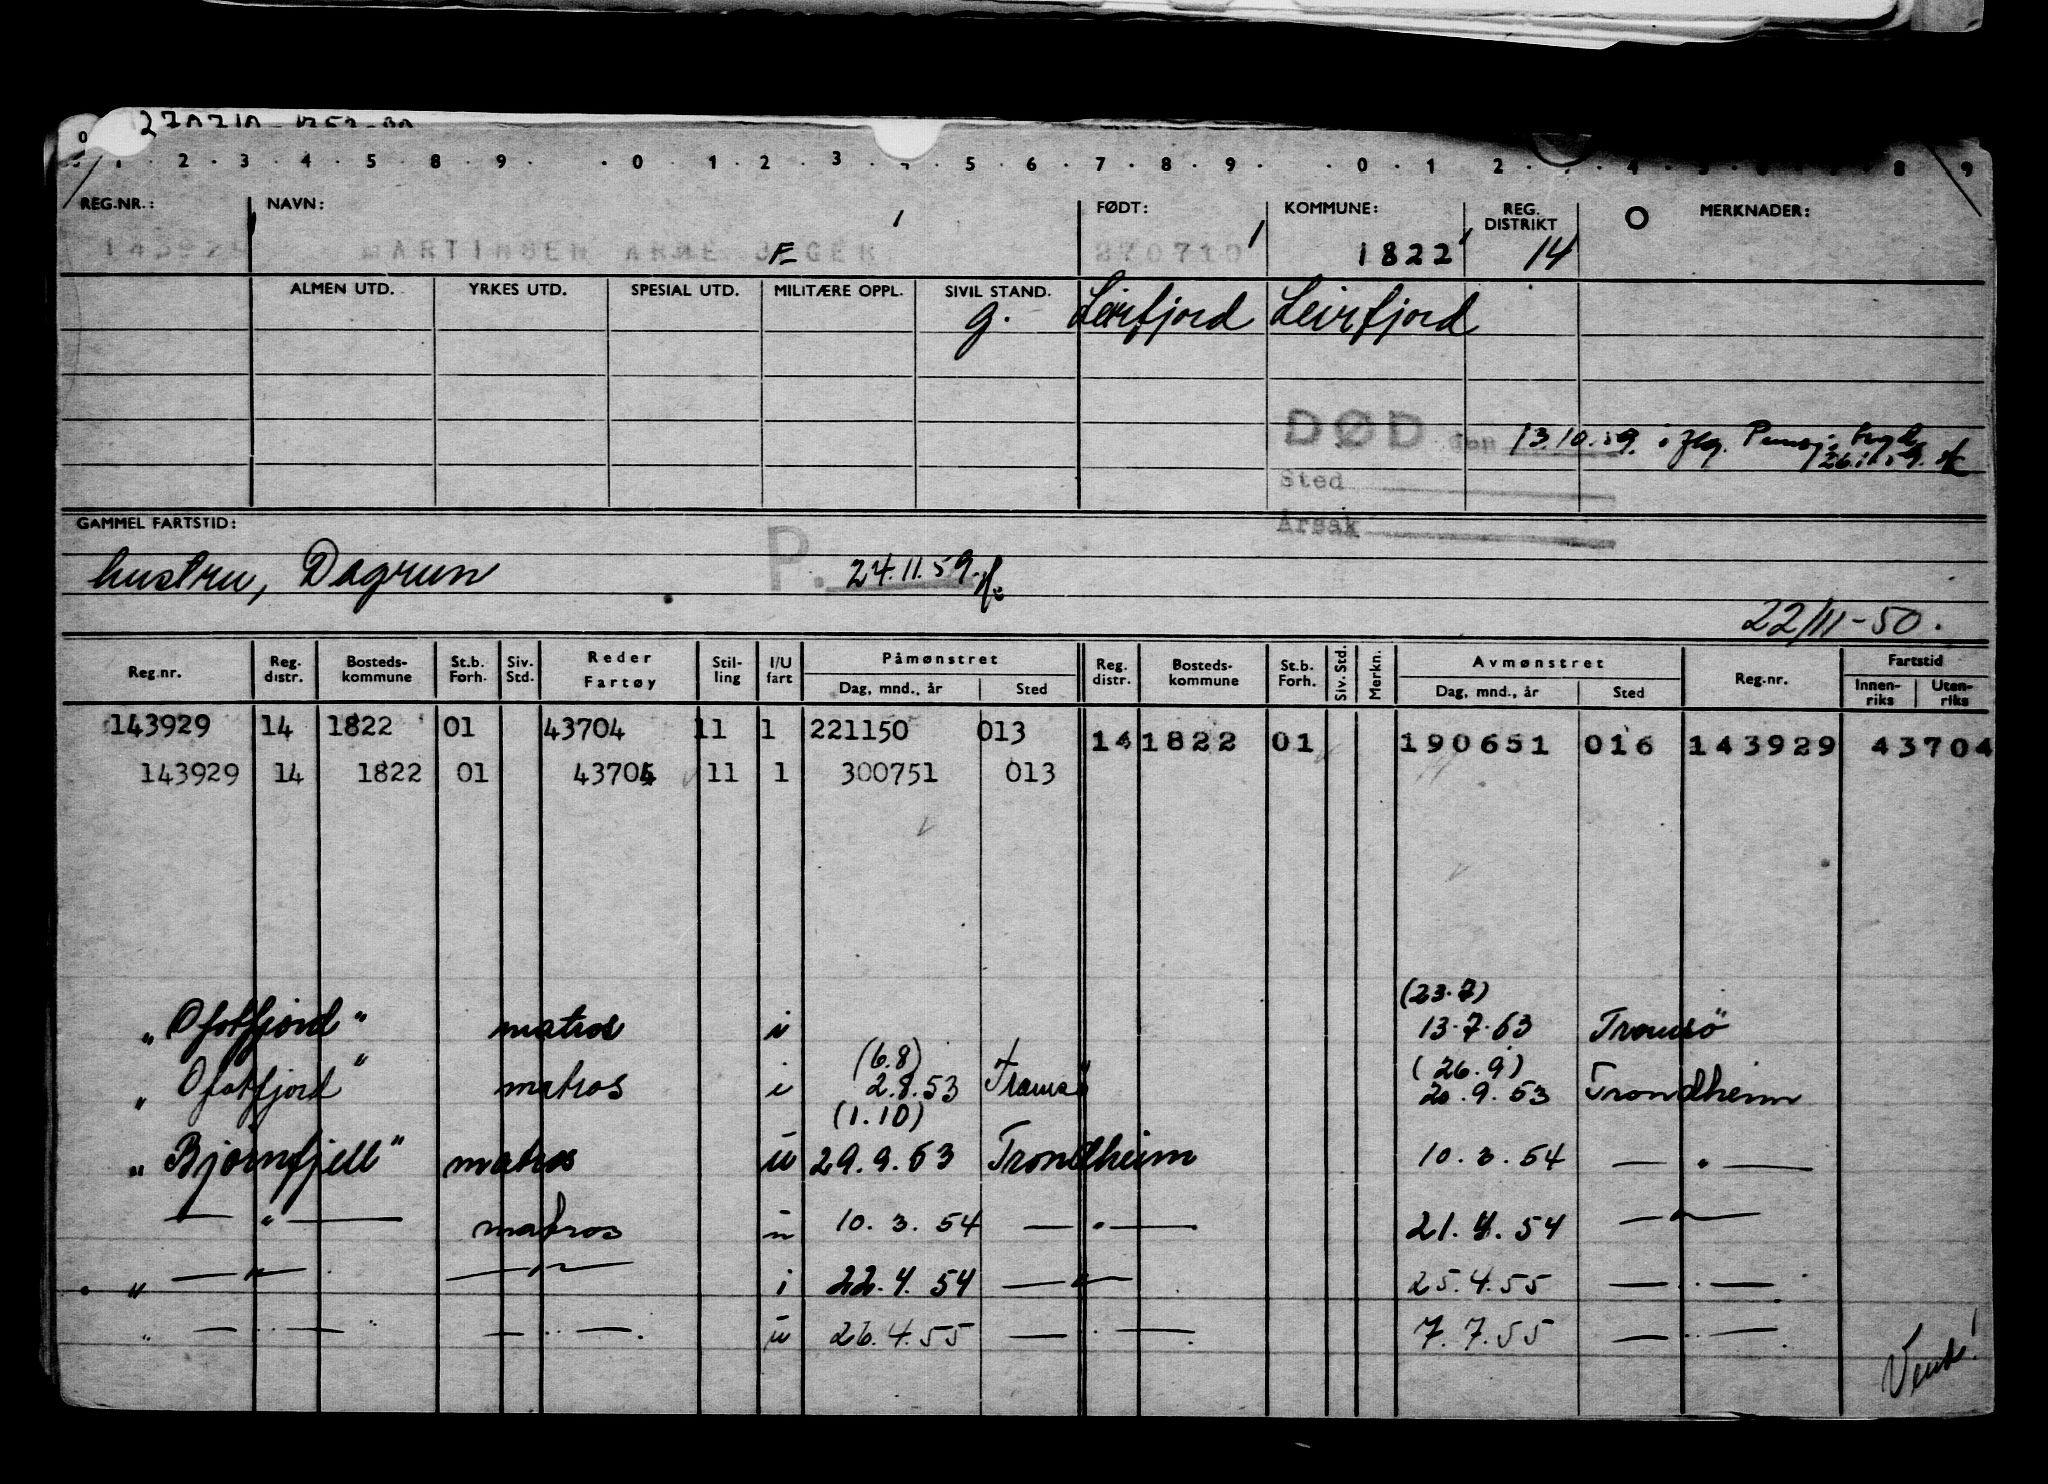 270710
0 1 2 3 4 5 8 9 0 1 2 3 5 6 7 8 9 0 1 2 4 8 9
REG.NR.: NAVN: FØDT: KOMMUNE: REG. DISTRIKT MERKNADER:
MARTINSEN ARNE F 270710 1822 14
ALMEN UTD. YRKES UTD. SPESIAL UTD. MILITÆRE OPPL. SIVIL STAND.
g. Leirfjord Leirfjord
DØD den 13.10.59. i flg.
Sted
Årsak
GAMMEL FARTSTID:
hustru, Dagrun P. 24.11.59.
22/11-50.
Reg.nr. Reg. distr. Bosteds- kommune St.b. Forh. Siv. Std. Reder Fartøy Stil- ling I/U fart Påmønstret Dag, mnd., år Sted Reg. distr. Bosteds- kommune St.b. Forh. Siv. Std. Merkn. Avmønstret Dag, mnd., år Sted Reg.nr. Fartstid Innen- riks Uten- riks
143929 14 1822 01 43704 11 1 221150 013 14 1822 01 190651 016 143929 43704
143929 14 1822 01 43704 11 1 300751 013
(23.7)
„ Ofotfjord “ matros i 13.7.53 Tromsö
(6.8) (26.9)
„ Ofotfjord “ matros i 2.8.53 Tromsö 20.9.53 Trondheim
(1.10)
„ Bjørnfjell “ matros u 29.9.53 Trondheim 10.3.54 — „ —
— „ — matros u 10.3.54 — „ — 21.4.54 — „ —
„ — „ — — „ — i 22.4.54 — „ — 25.4.55 — „ —
„ — „ — “ — „ — u 26.4.55 — „ — 7.7.55 — „ —